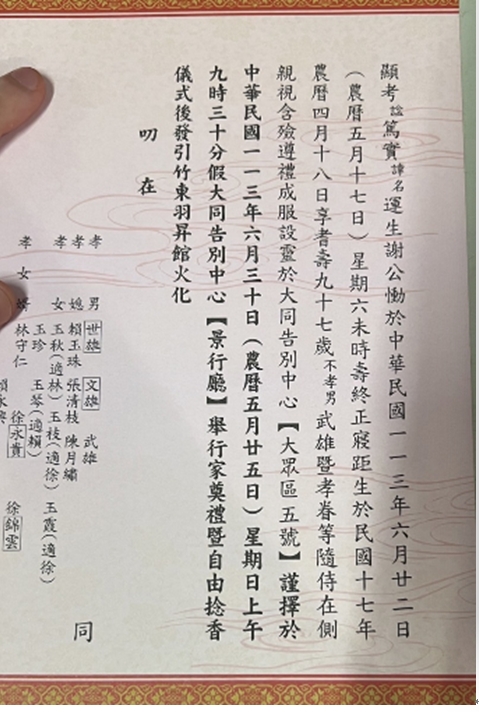 顯考諡篤實諱名運生謝公慟於中華民國一一三年六月廿二日
（農曆五月十七日）星期六未時壽終正寢距生於民國十七年
農曆四月十八日享耆壽九十七歲不孝男武雄暨孝眷等隨侍在側
親視含殮遵禮成服設靈於大同告別中心【大眾區五號】謹擇於
中華民國一一三年六月三十日（農曆五月廿五日）星期日上午
九時三十分假大同告別中心【景行廳】舉行家奠禮暨自由捻香
儀式後發引竹東羽昇館火化
叨在
孝男 世雄 文雄 武雄
孝媳 賴玉珠 張清枝 陳月繡
孝女 玉秋（適林） 玉枝（適徐） 玉霞（適徐）
玉珍 玉琴（適賴）
孝女婿 林守仁 徐永貴 徐錦雲
同